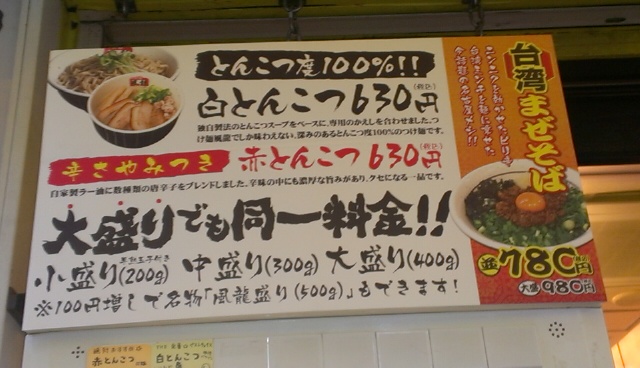 とんこつ度100%!!
白とんこつ630円(税込)
独自製法のとんこつスープをベースに、専用のかえしを合わせました。つ
け麺風龍でしか味わえない、深みのあるとんこつ度100%のつけ麺です。
辛さやみつき 赤とんこつ630円(税込)
自家製ラー油に数種類の唐辛子をブレンドしました。辛味の中にも濃厚な旨みがあり、クセになる一品です。
大盛りでも同一料金!!
小盛り(200g) 半熟玉子付き 中盛り(300g) 大盛り(400g)
※100円増しで名物「風龍盛り(500g)」もできます!
台湾まぜそば
ニンニクを効かせたピリ辛
台湾ミンチを麺に乗せた
今話題の名古屋メシ!!
並780円(税込)
大盛980円
赤とんこつ
白とんこつ